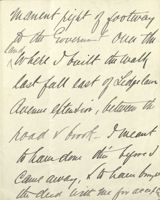 manent right of footway
to the Government over the
land where I built the walk
last fall east of Ledgelawn
Avenue extension, between the
road & brook. I meant
to have done this before I
came away, & to have brought
the deed with me for